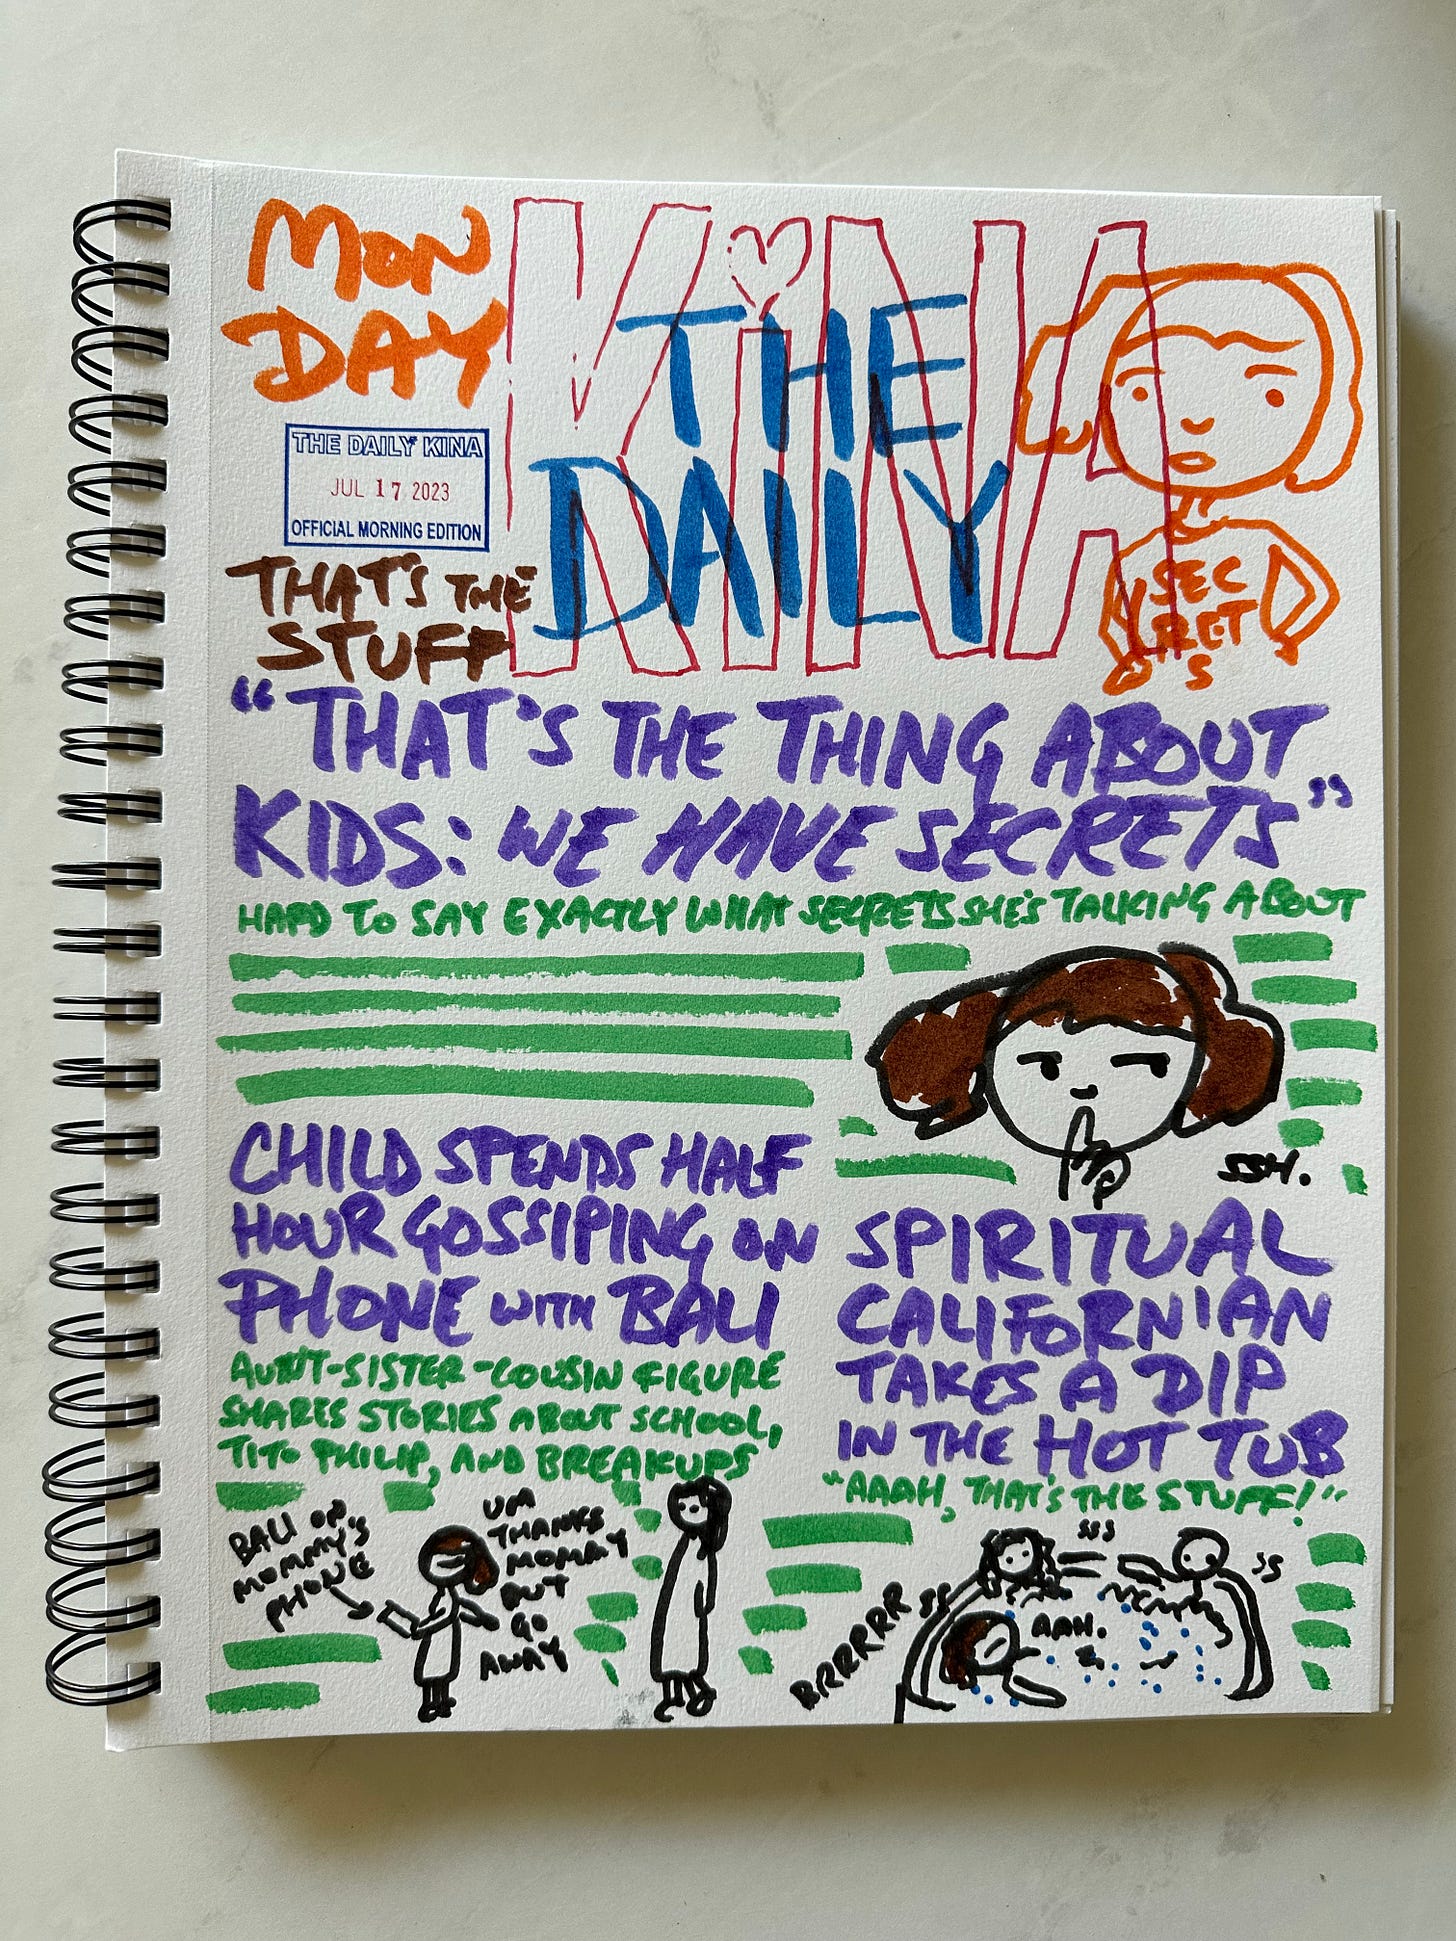 MON
DAY
KiNA
THE
DAILY
THE DAILY KINA
JUL 17 2023
OFFICIAL MORNING EDITION
THAT'S THE
STUFF
SEC
RET
S
"THAT'S THE THING ABOUT
KIDS: WE HAVE SECRETS"
HARD TO SAY EXACTLY WHAT SECRETS SHE'S TALKING ABOUT
SSH.
CHILD SPENDS HALF
HOUR GOSSIPING ON
PHONE WITH BALI
AUNT-SISTER-COUSIN FIGURE
SHARES STORIES ABOUT SCHOOL,
TITO PHILIP, AND BREAKUPS
BALI ON
MOMMY'S
PHONE
UM
THANKS
MOMMY
BUT
GO
AWAY
SPIRITUAL
CALIFORNIAN
TAKES A DIP
IN THE HOT TUB
"AAAH, THAT'S THE STUFF!"
BRRRRRR
AAH.